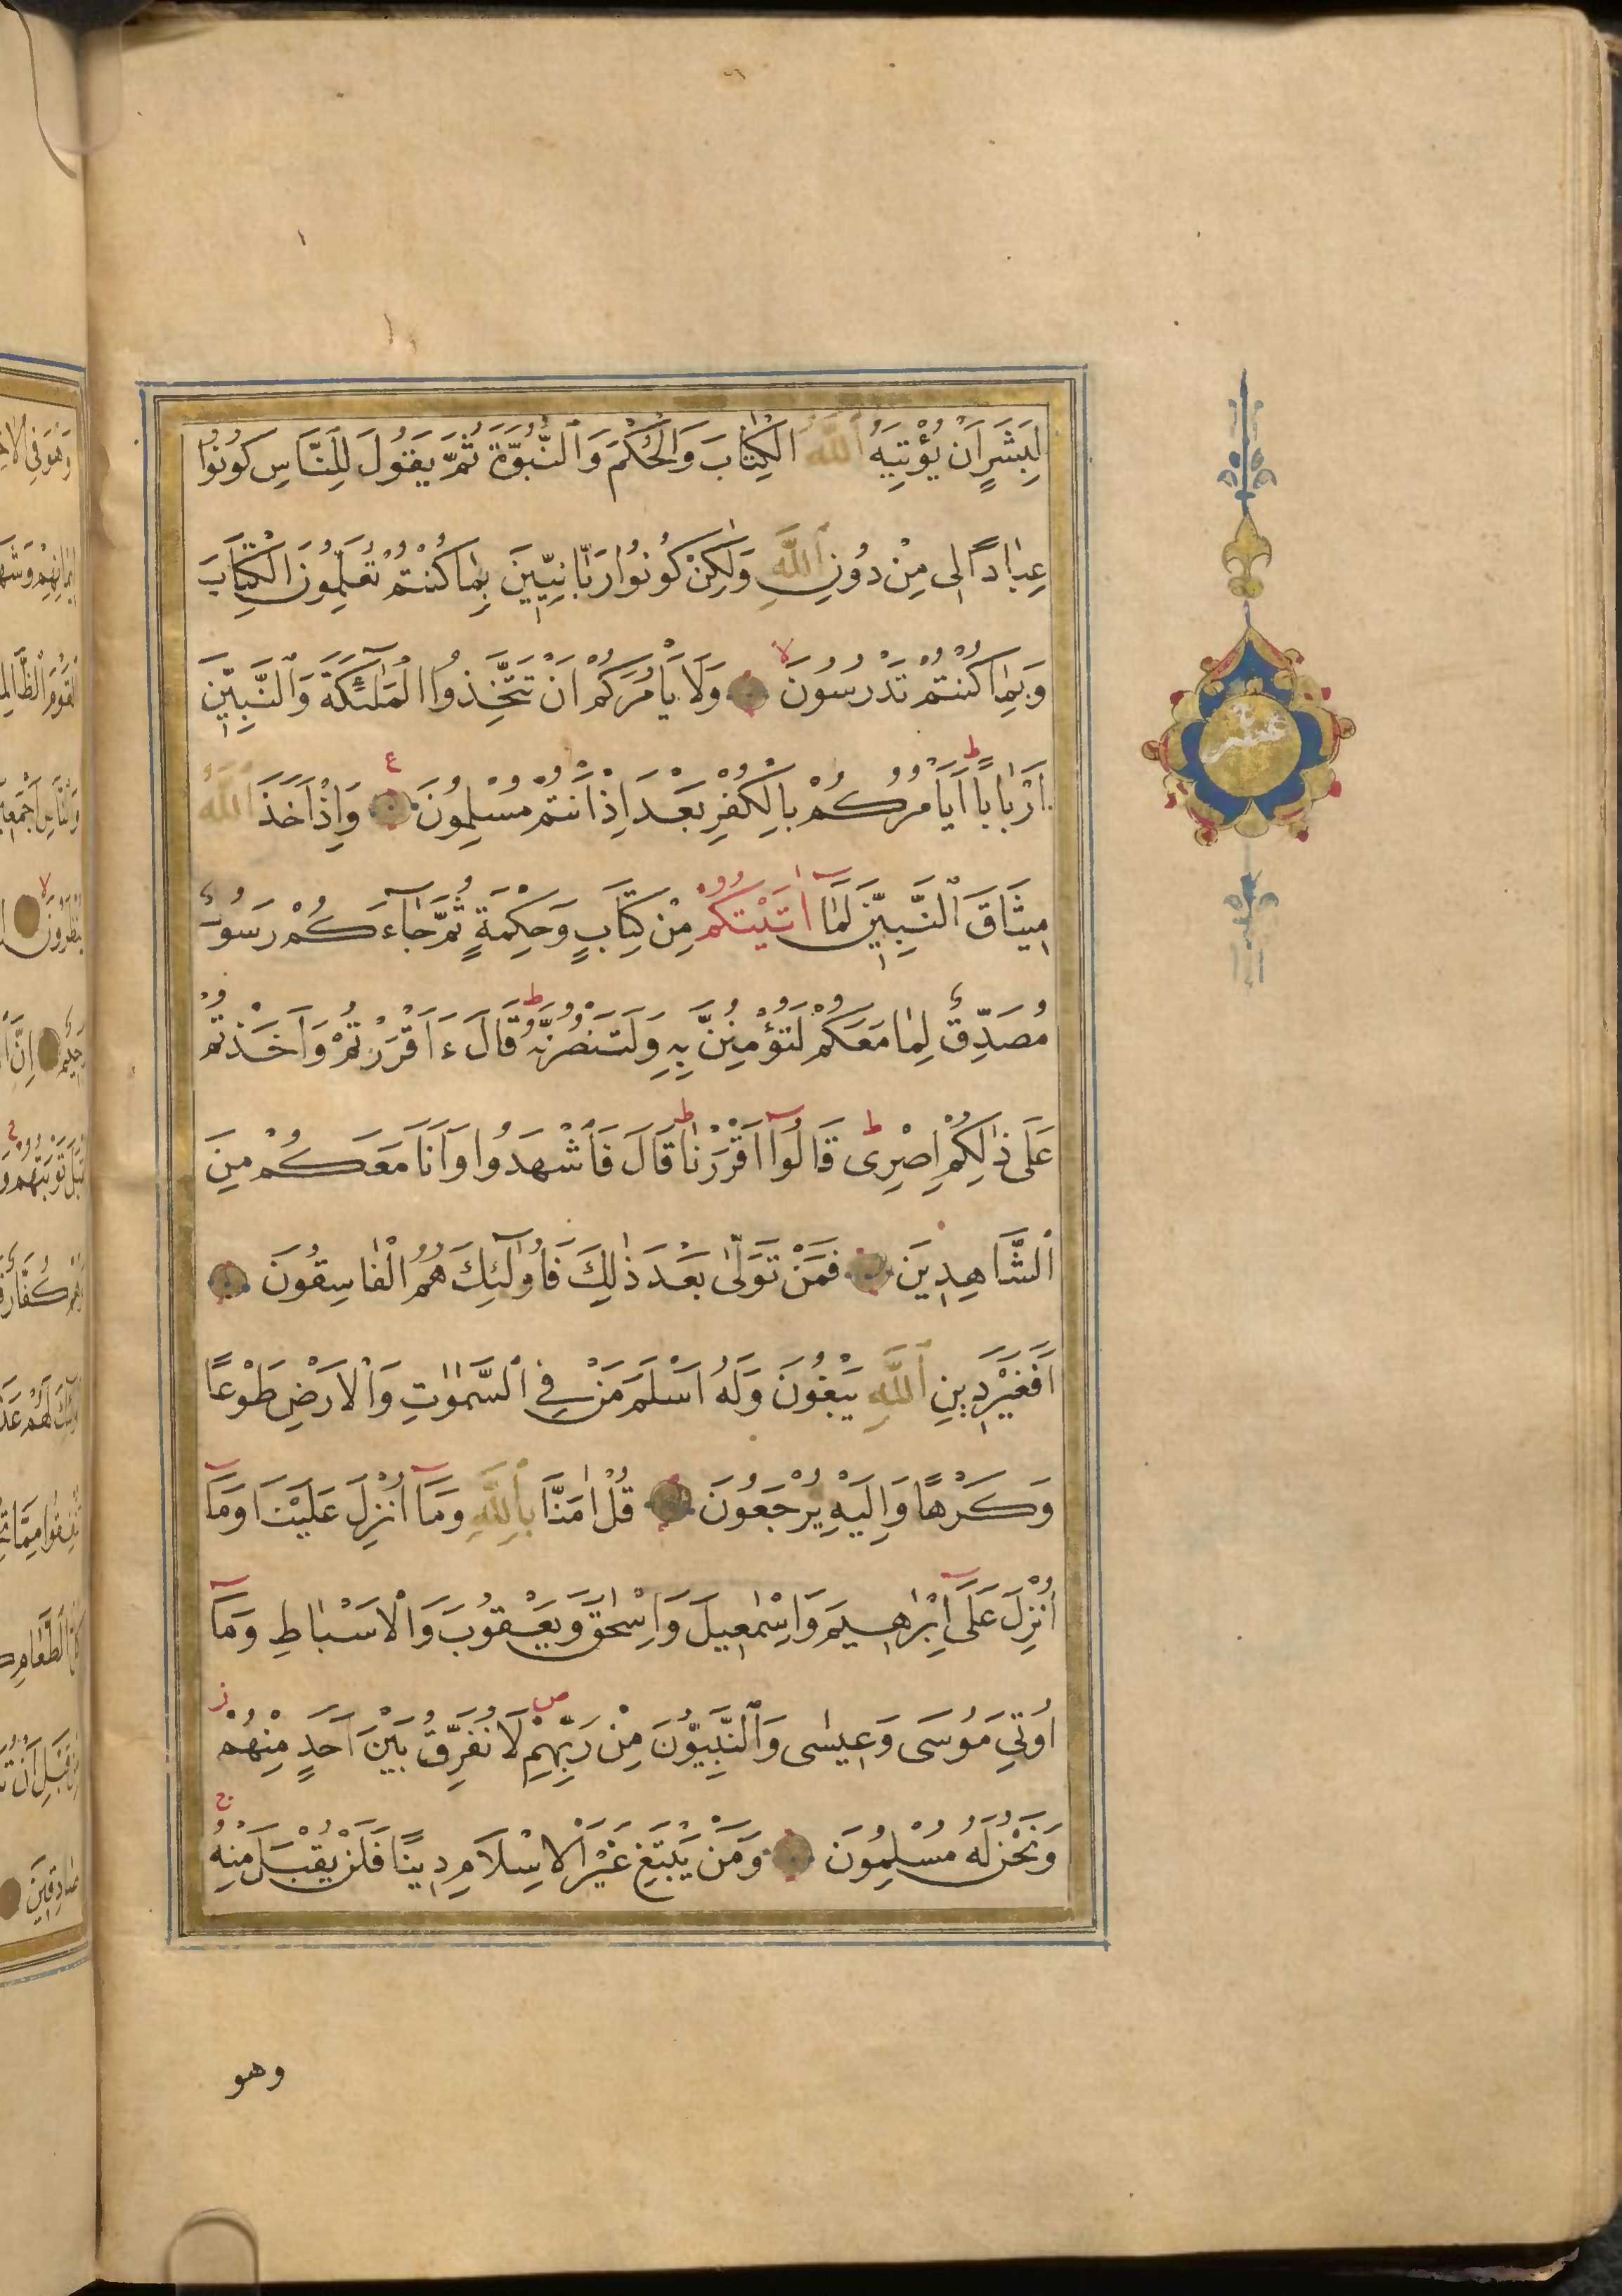 لِبَشَرٍ اَنْ يُؤْتِيَهُ اللّٰهُ الْكِتَابَ وَالْحُكْمَ وَالنُّبُوَّةَ ثُمَّ يَقُولَ لِلنَّاسِ كُونُوا
عِبَادًا لِى مِنْ دُونِ اللّٰهِ وَلٰكِنْ كُونُوا رَبَّانِيّٖنَ بِمَا كُنْتُمْ تُعَلِّمُونَ الْكِتَابَ
وَبِمَا كُنْتُمْ تَدْرُسُونَ لا وَلَا يَأْمُرَكُمْ اَنْ تَتَّخِذُوا الْمَلٰٓئِكَةَ وَالنَّبِيّٖنَ
اَرْبَابًا ط اَيَأْمُرُكُمْ بِالْكُفْرِ بَعْدَ اِذْ اَنْتُمْ مُسْلِمُونَ ع وَاِذْ اَخَذَ اللّٰهُ
مٖيثَاقَ النَّبِيّٖنَ لَمَٓا اٰتَيْتُكُمْ مِنْ كِتَابٍ وَحِكْمَةٍ ثُمَّ جَٓاءَكُمْ رَسُولٌ
مُصَدِّقٌ لِمَا مَعَكُمْ لَتُؤْمِنُنَّ بِهِ وَلَتَنْصُرُنَّهُ ط قَالَ ءَاَقْرَرْتُمْ وَاَخَذْتُمْ
عَلٰى ذٰلِكُمْ اِصْرِى ط قَالُٓوا اَقْرَرْنَا ط قَالَ فَاشْهَدُوا وَاَنَا مَعَكُمْ مِنَ
الشَّاهِدٖينَ فَمَنْ تَوَلّٰى بَعْدَ ذٰلِكَ فَاُولٰٓئِكَ هُمُ الْفَاسِقُونَ
اَفَغَيْرَ دٖينِ اللّٰهِ يَبْغُونَ وَلَهُ اَسْلَمَ مَنْ فِي السَّمٰوٰتِ وَالْاَرْضِ طَوْعًا
وَكَرْهًا وَاِلَيْهِ يُرْجَعُونَ قُلْ اٰمَنَّا بِاللّٰهِ وَمَٓا اُنْزِلَ عَلَيْنَا وَمَٓا
اُنْزِلَ عَلٰٓى اِبْرٰهٖيمَ وَاِسْمٰعٖيلَ وَاِسْحٰقَ وَيَعْقُوبَ وَالْاَسْبَاطِ وَمَٓا
اُوتِيَ مُوسٰى وَعٖيسٰى وَالنَّبِيُّونَ مِنْ رَبِّهِمْ ص لَا نُفَرِّقُ بَيْنَ اَحَدٍ مِنْهُمْ ز
وَنَحْنُ لَهُ مُسْلِمُونَ وَمَنْ يَبْتَغِ غَيْرَ الْاِسْلَامِ دٖينًا فَلَنْ يُقْبَلَ مِنْهُ ج
وهو